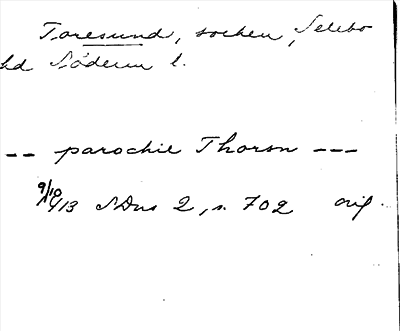 Toresund, socken, Selebo
hd Söderm l.
-- parochie Thorsn ---
9/10 1413 SDns 2, s. 702 orig.